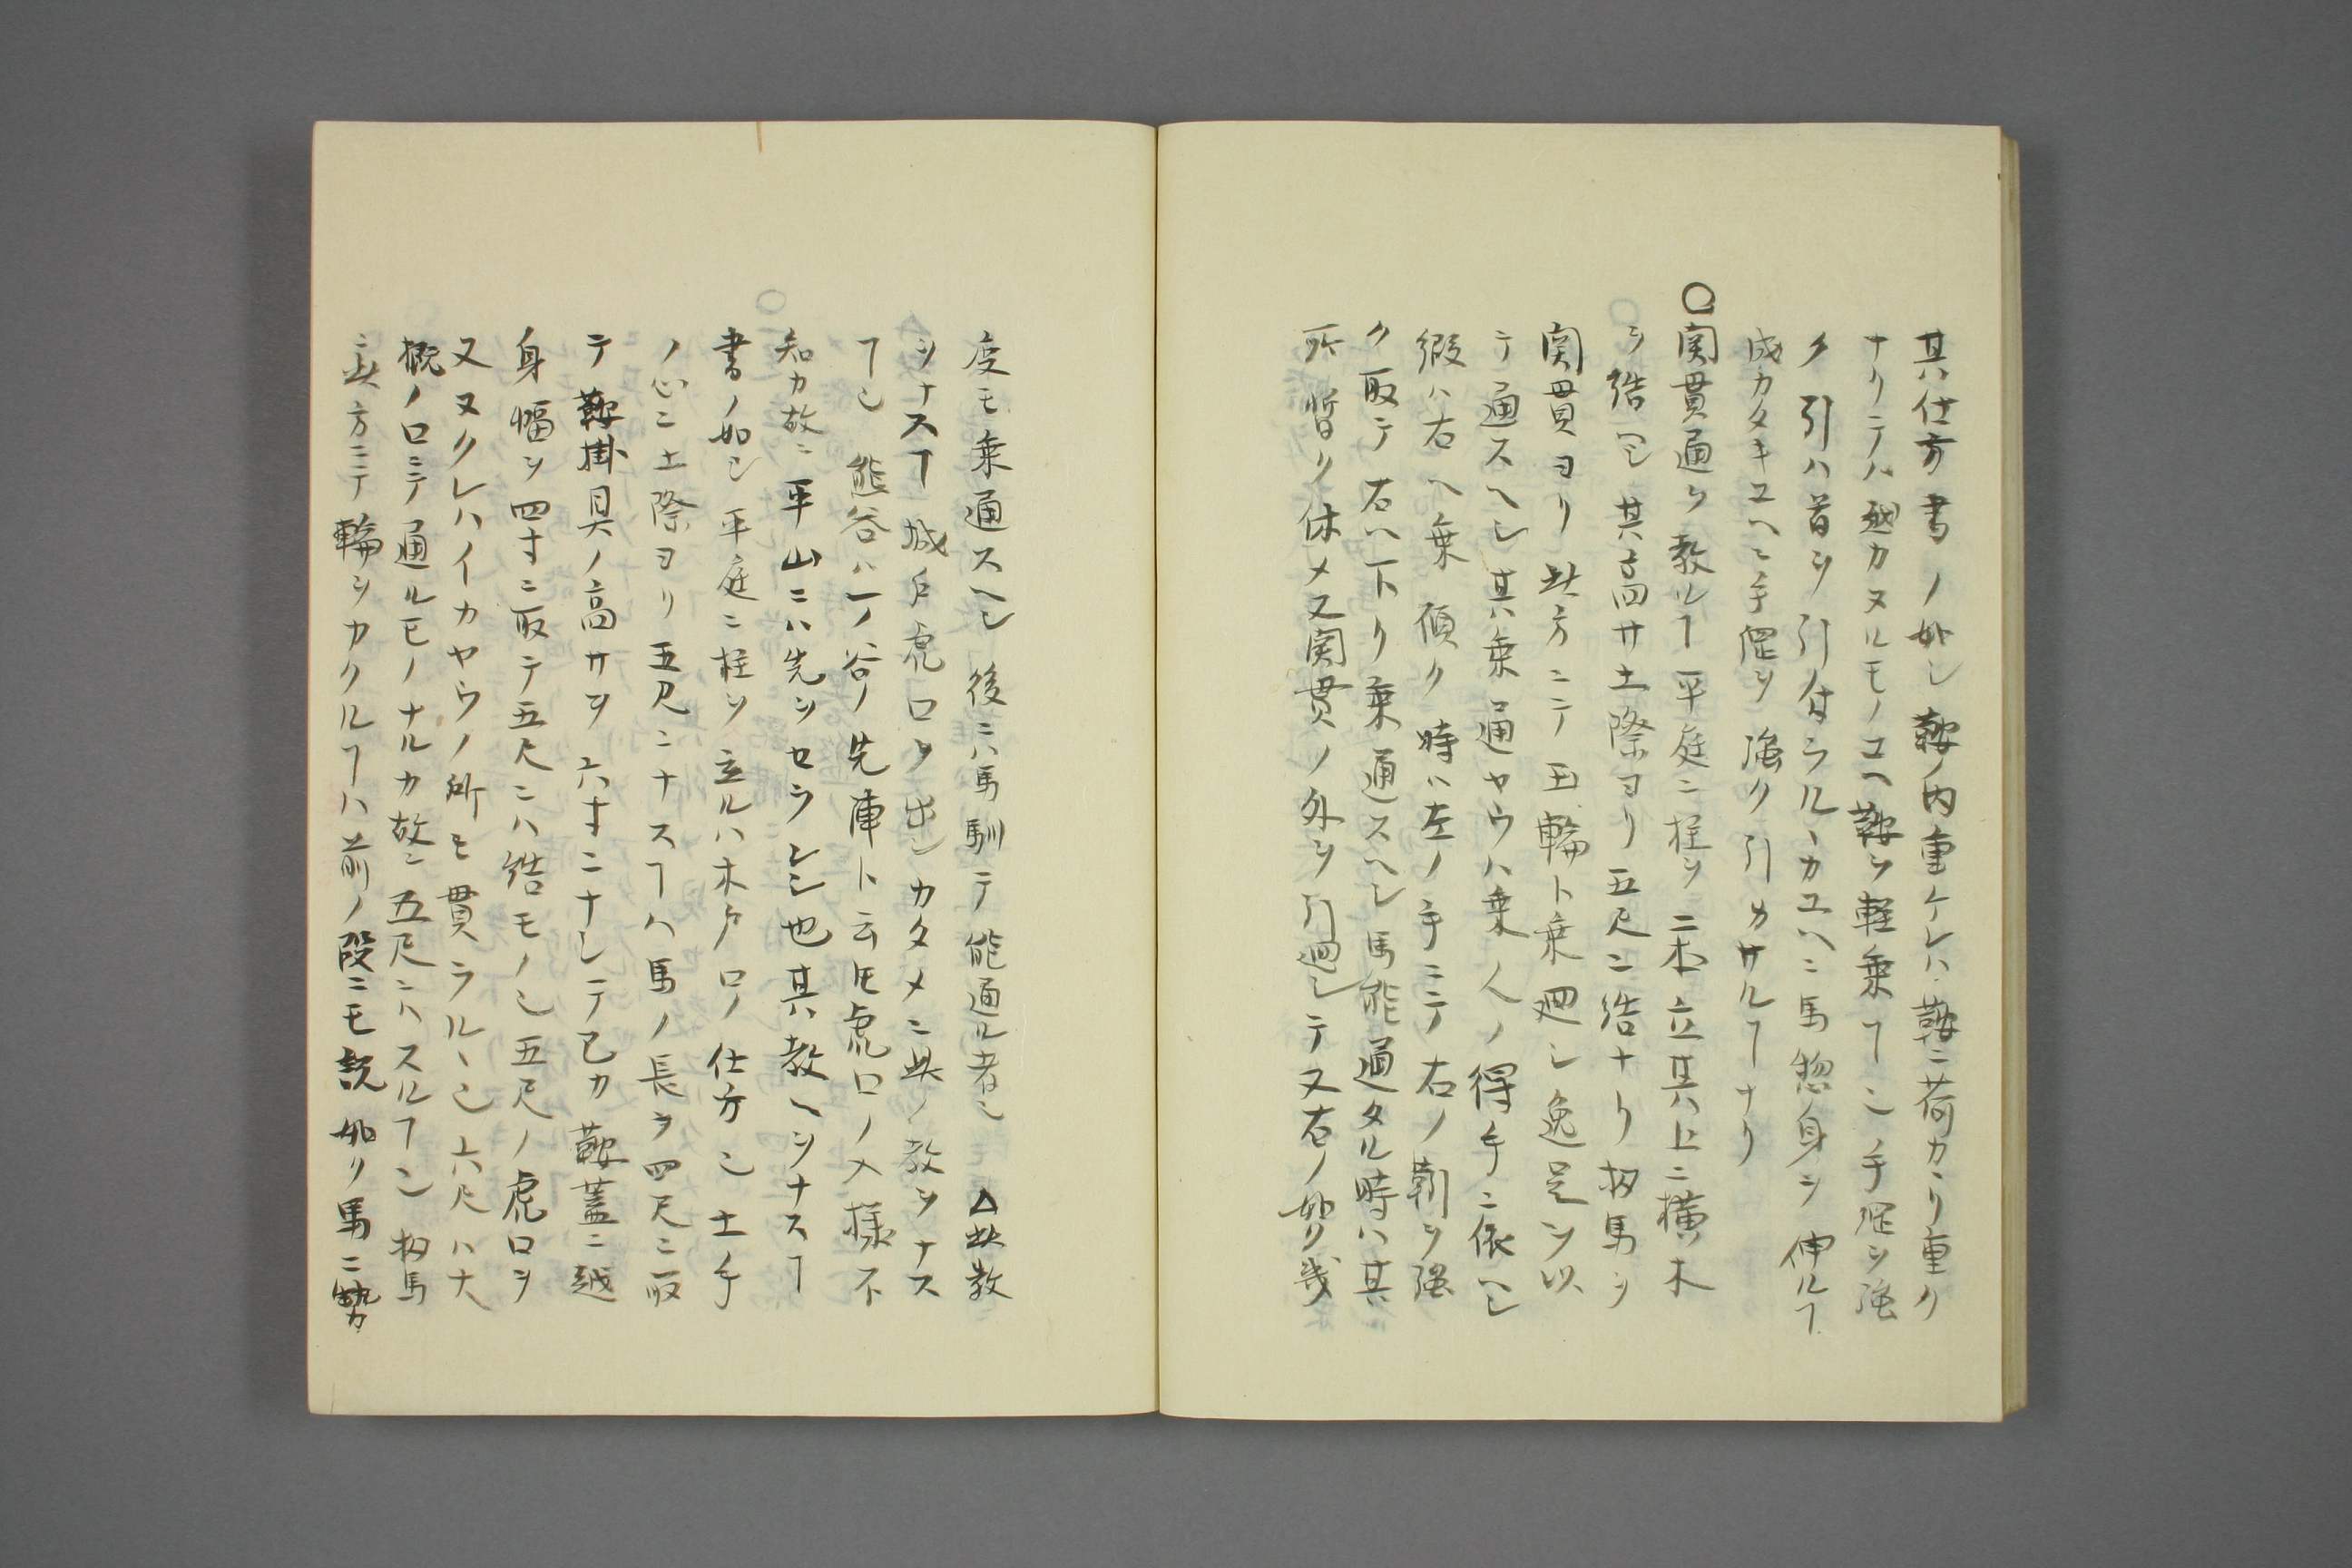 其仕方書ノ如シ鞍ノ内重ケレハ鞍ニ荷カヽリ重ク
ナリテハ越カヌルモノユヘ鞍ヲ軽乗ヿ也手縄ヲ強
ク引ハ首ヲ引付ラルヽカユヘニ馬惣身ヲ伸ルヿ
成カタキユヘニ手縄ヲ強ク引カサルヿナリ
○関貫通シ教ルヿ平庭ニ柱ヲ二本立其上ニ横木
ヲ結ヘシ其高サ土際ヨリ五尺ニ結ナリ扨馬ヲ
関貫ヨリ此方ニテ五輪ト乗廻シ逸足ヲ以
テ通スヘシ其乗通ヤウハ乗人ノ得手ニ依ヘシ
縦ハ右ヘ乗傾ク時ハ左ノ手ニテ右ノ靷ヲ強
ク取テ右ヘ下リ乗通スヘシ馬能通タル時ハ其
所暫ク休メ又関貫ノ外ヲ引廻シテ又右ノ如ク幾
度モ乗通スヘシ後ニハ馬馴テ能通ル者也 △此教
ヲナスヿ城戸虎口ヲ出シカタメニ此ノ教ヲナス
ヿ也熊谷ハ一ノ谷ノ先陣ト云𪜈虎口ノ入様不
知カ故ニ平山ニハ先ヲセラレシ也其教ヘヲナスヿ
書ノ如シ平庭ニ柱ヲ立ルハ木戸口ノ仕方也土手
ノ心ニ土際ヨリ五尺ニナスヿハ馬ノ長ヲ四尺ニ取
テ鞍掛具ノ高サヲ六寸ニナシテ己カ鞍蓋ニ越
身幅ヲ四寸ニ取テ五尺ニハ結モノ也五尺ノ虎口ヲ
又ヌクレハイカヤウノ所モ貫ラルヽ也六尺ハ大
概ノ口ニテ通ルモノナルカ故ニ五尺ニハスルヿ也扨馬
ニ此方ニテ輪ヲカクルヿハ前ノ段ニモ説如ク馬ニ勢カ